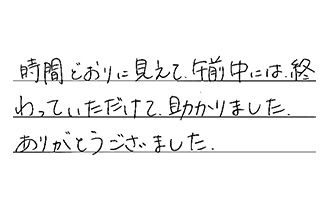 時間どおりに見えて、午前中には、終
わっていただけて、助かりました。
ありがとうございました。